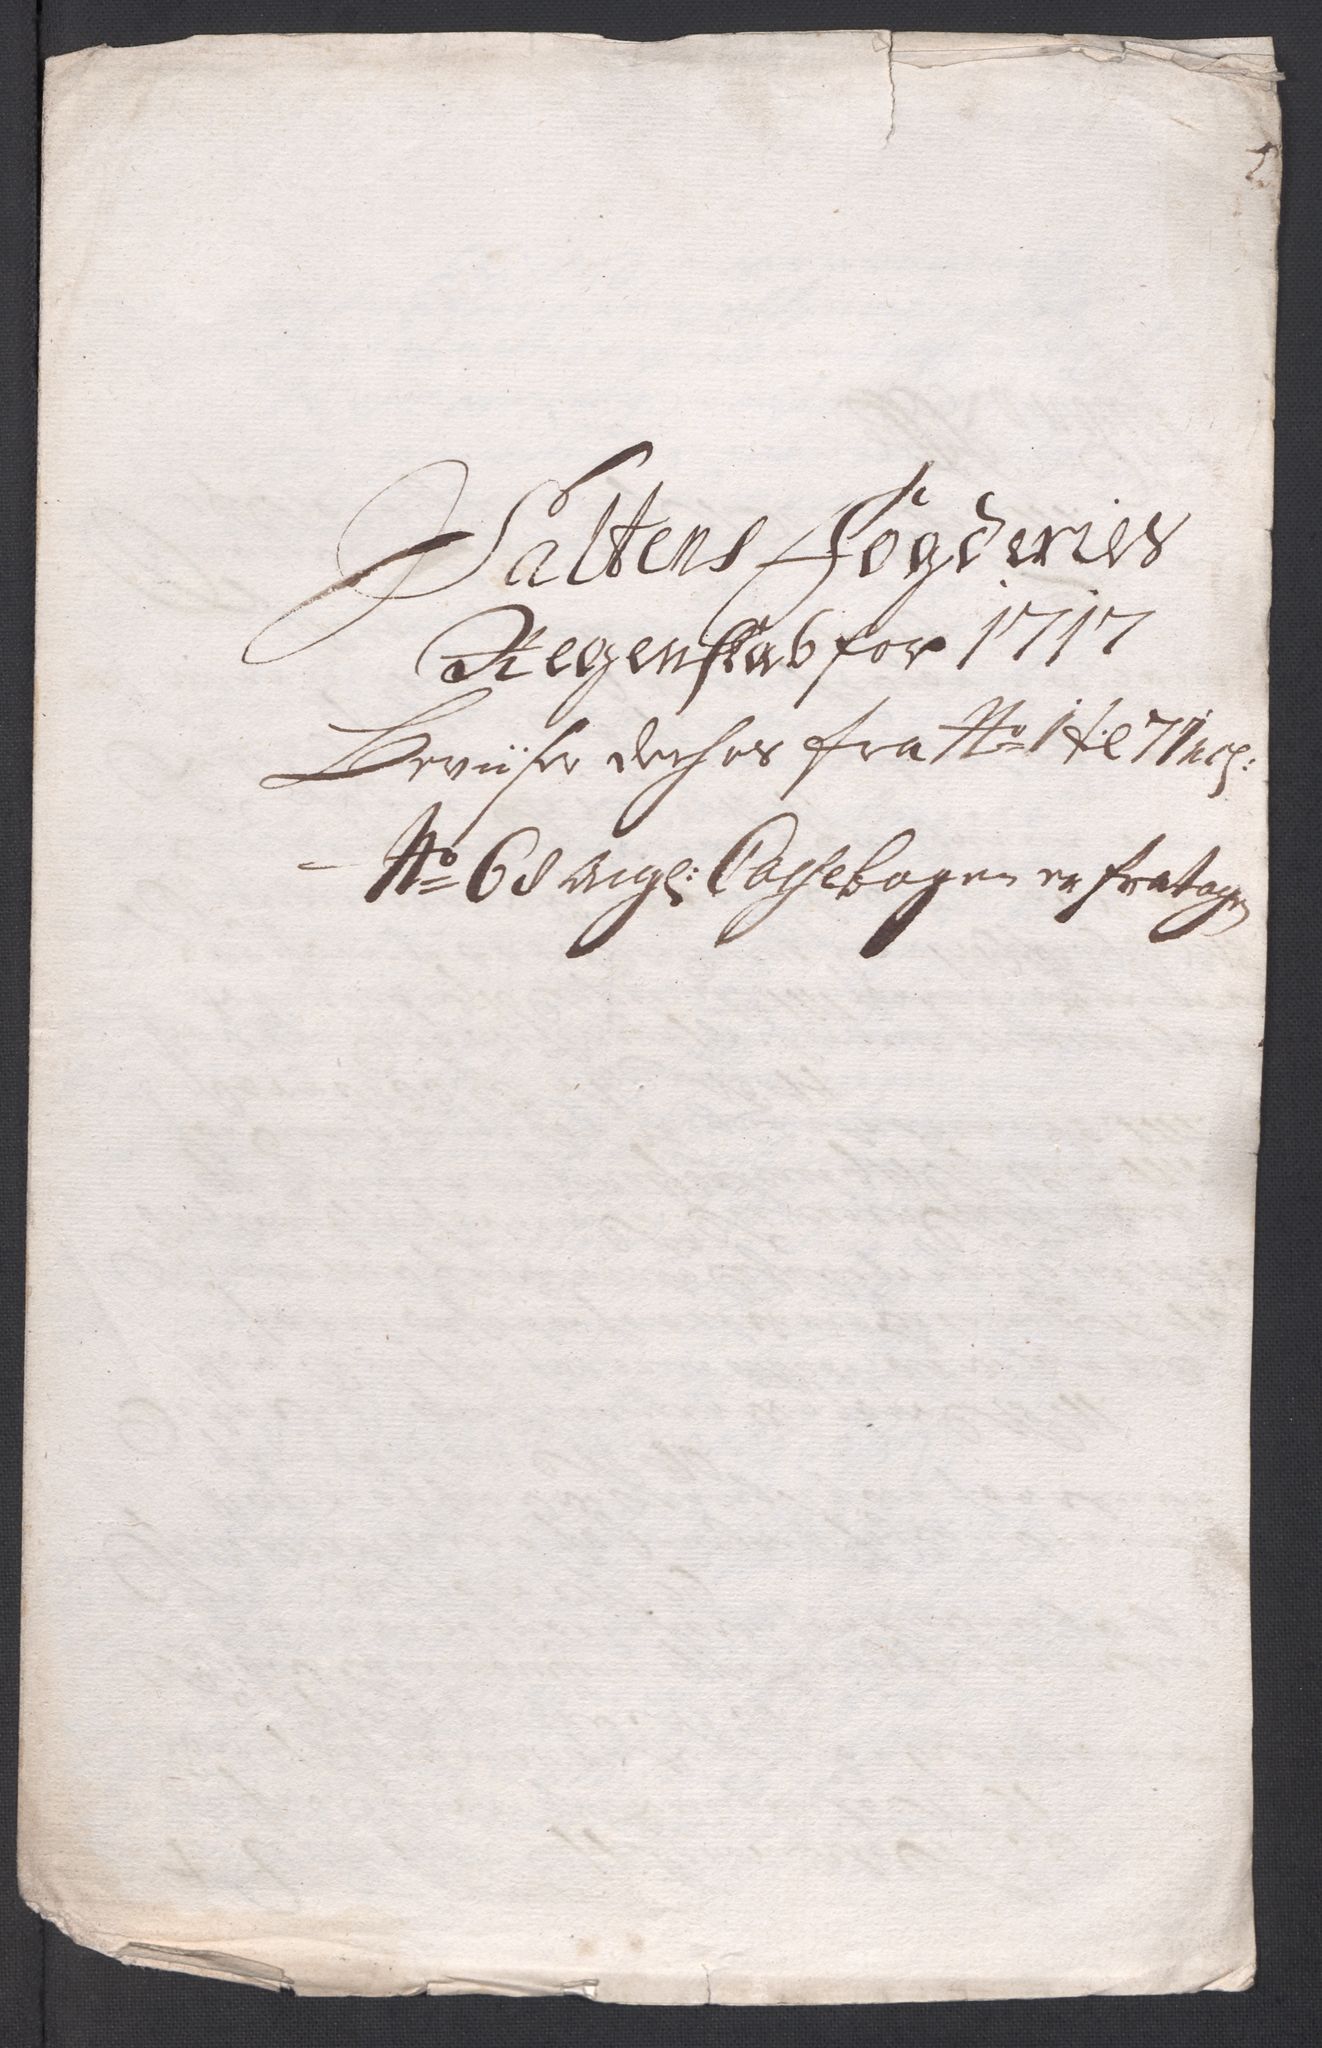 Saltens Fogderies
Regenskab for 1717
Beviiser dertil fra No 1 til 71 incl:
No 68 angl: Cassebogen er fratagen